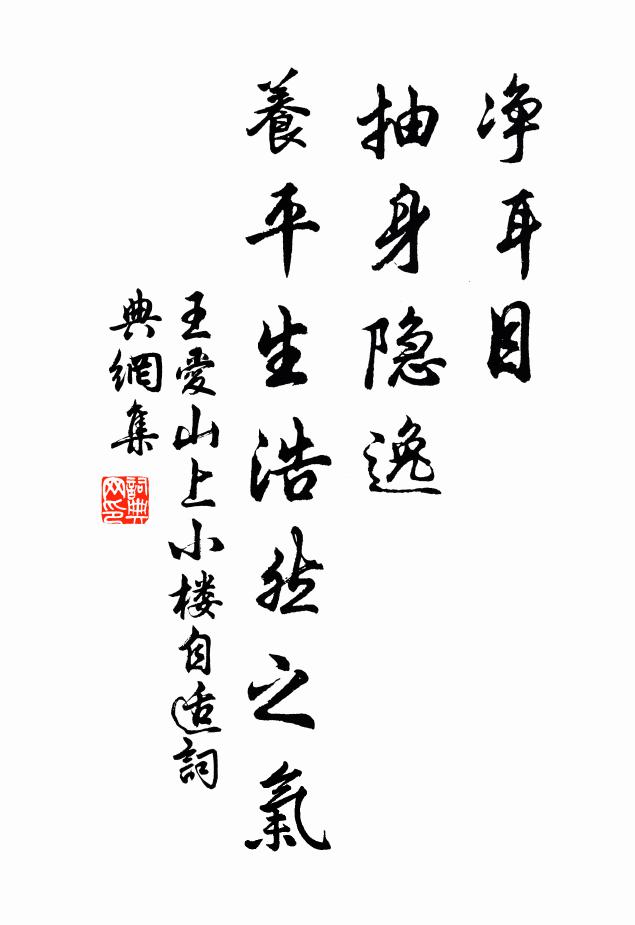 净耳目
抽身隐逸
養平生浩然之氣
王愛山上小楼自适詞
典網集
詞典网印